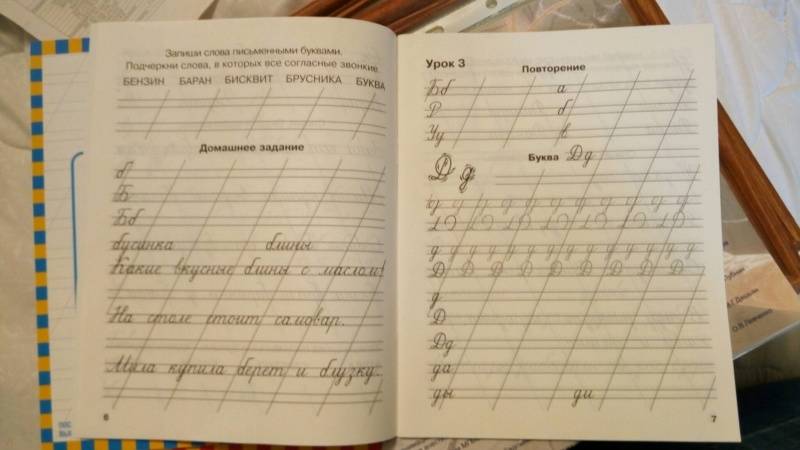 Запиши слова письменными буквами.
Подчеркни слова, в которых все согласные звонкие.
БЕНЗИН БАРАН БИСКВИТ БРУСНИКА БУКВА
Домашнее задание
б
Б
Бб
бусинка блины
Какие вкусные блины с маслом!
На столе стоит самовар.
Мила купила берет и блузку.
6
Урок 3
Повторение
Бб а
Р б
Уу в
Буква Дд
Д д
д д д д д д д д д д
д д д д д д д д д д д д
Д Д Д Д Д Д Д Д
д
Д
Дд
да
ды ди
7